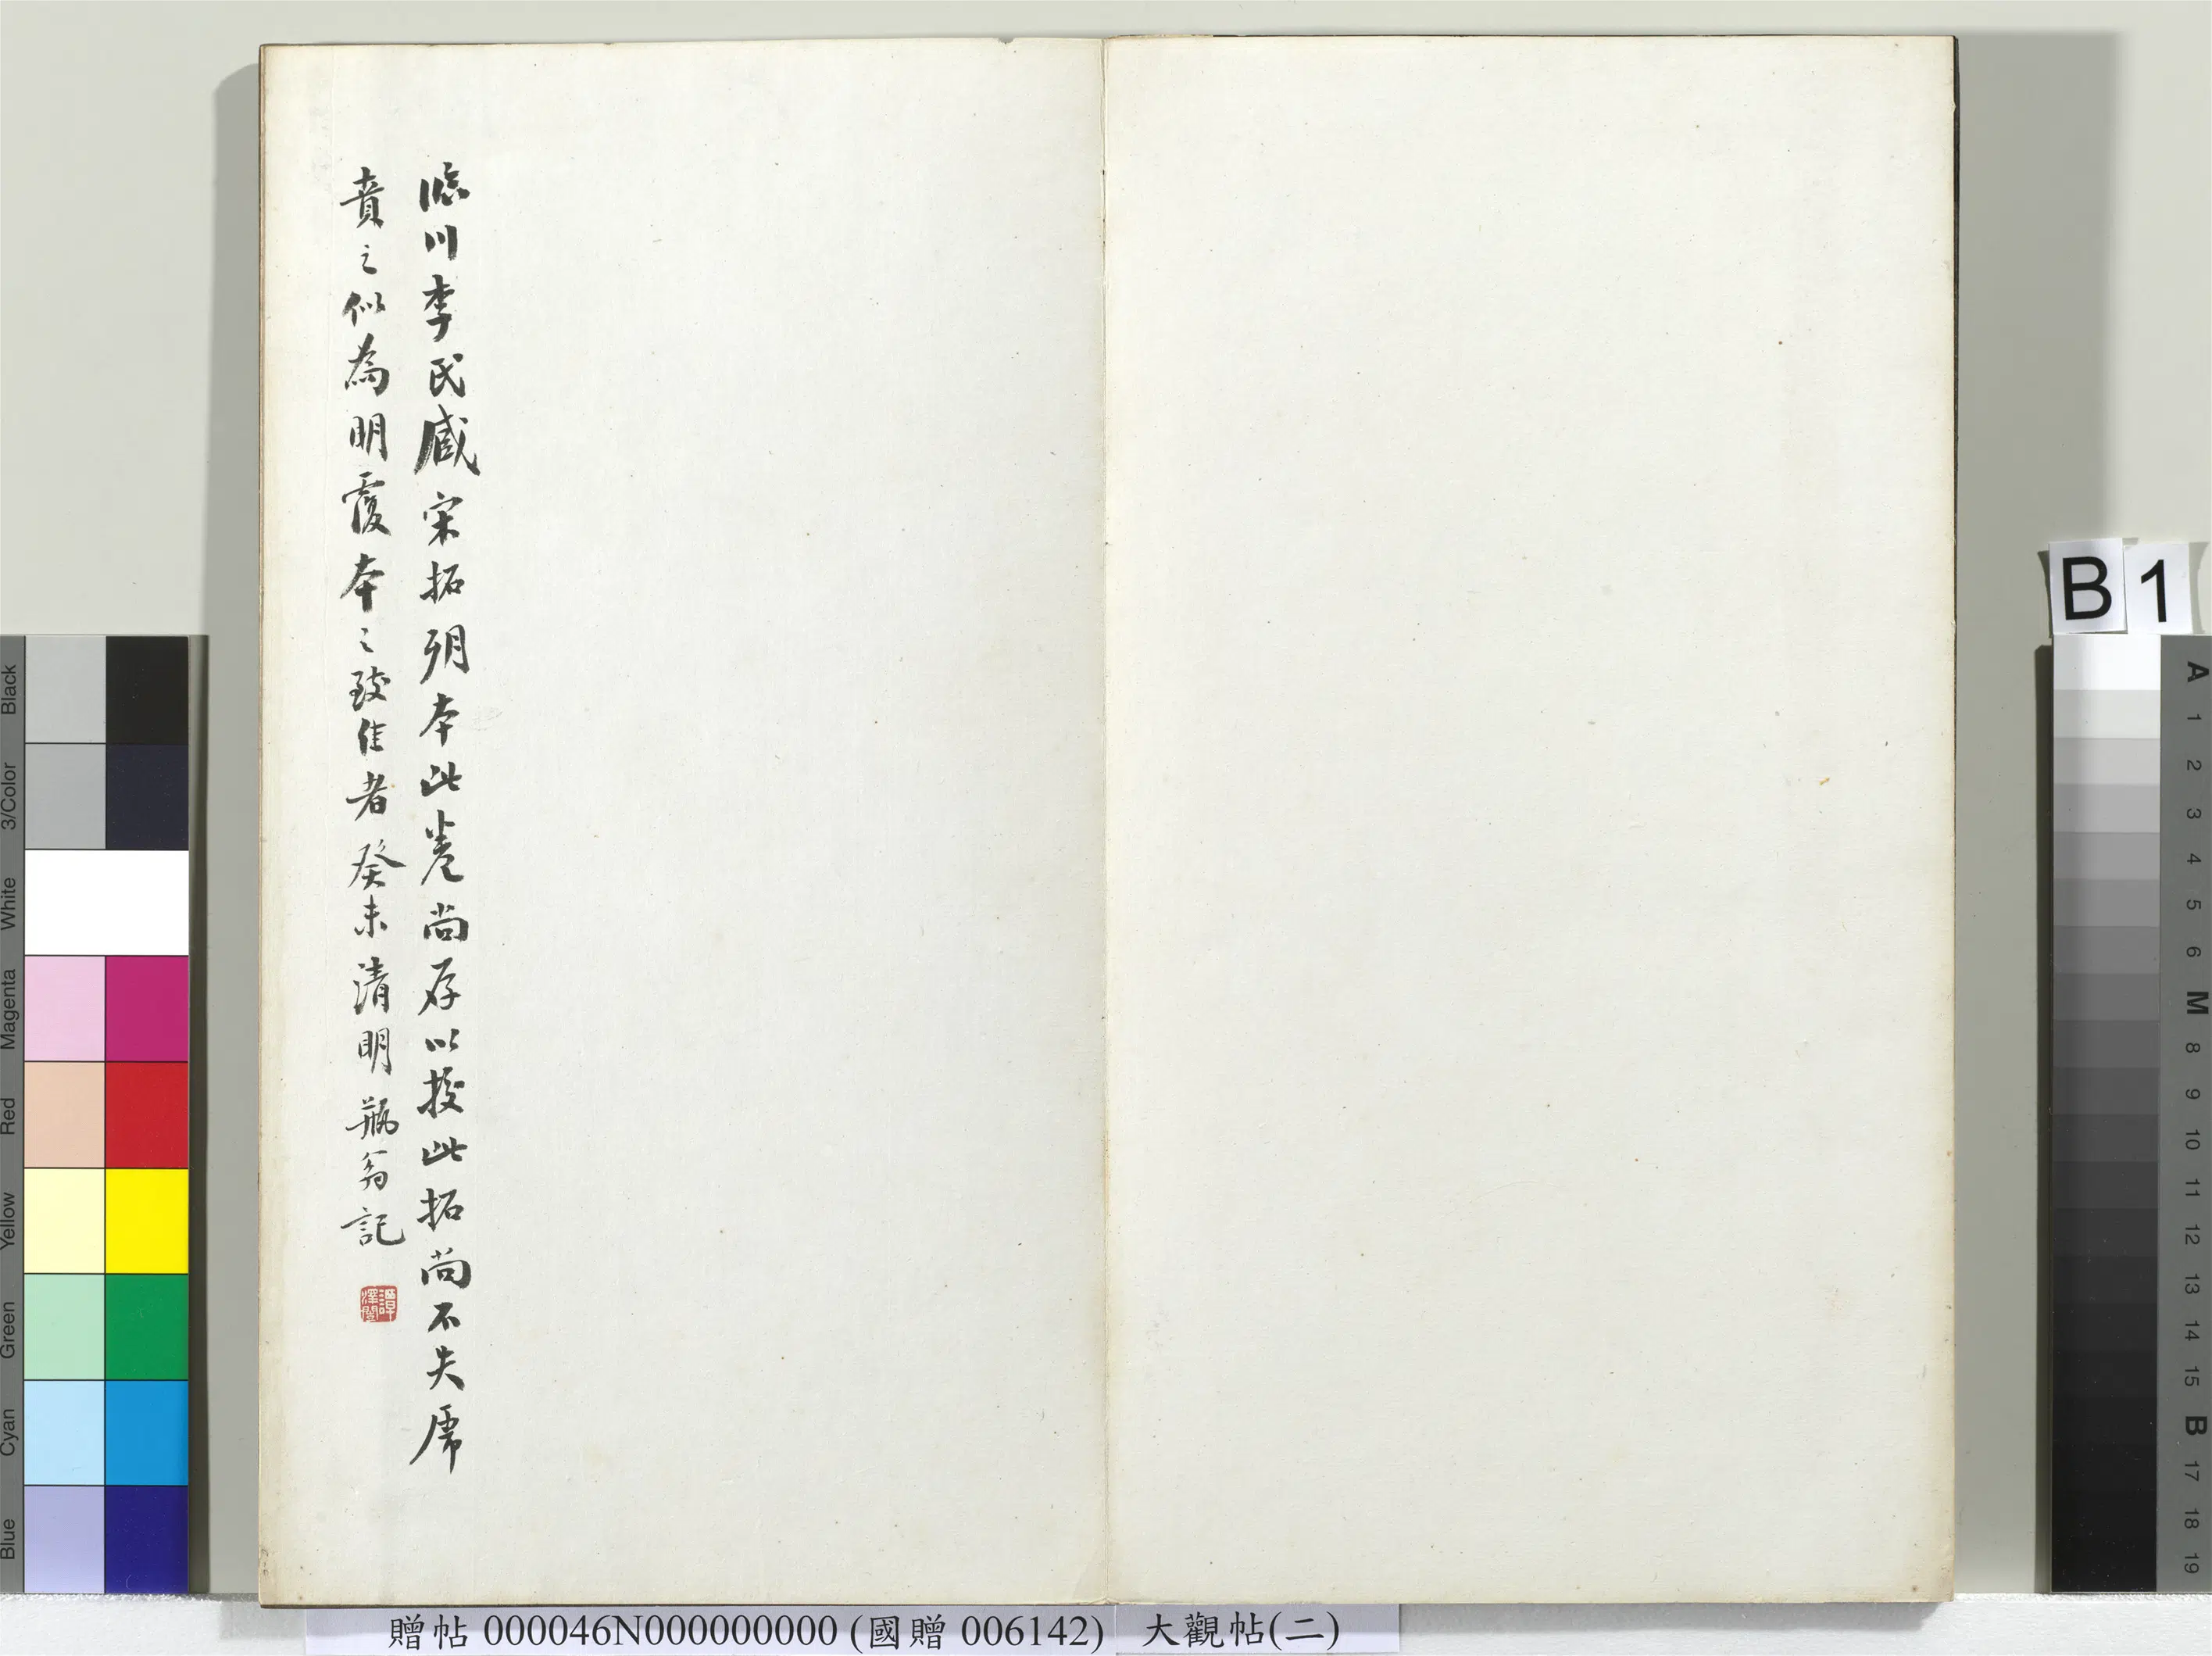 臨川李氏臧宋拓本此卷尚存以挍此拓尚不失虎
賁之似為明覆本之較佳者癸未清明瓶翁記
譚澤闓
贈帖 000046N000000000 (國贈 006142) 大觀帖(二)
B 1
Black
3/Color
White
Magenta
Red
Yellow
Green
Cyan
Blue
A
1
2
3
4
5
6
M
8
9
10
11
12
13
14
15
B
17
18
19